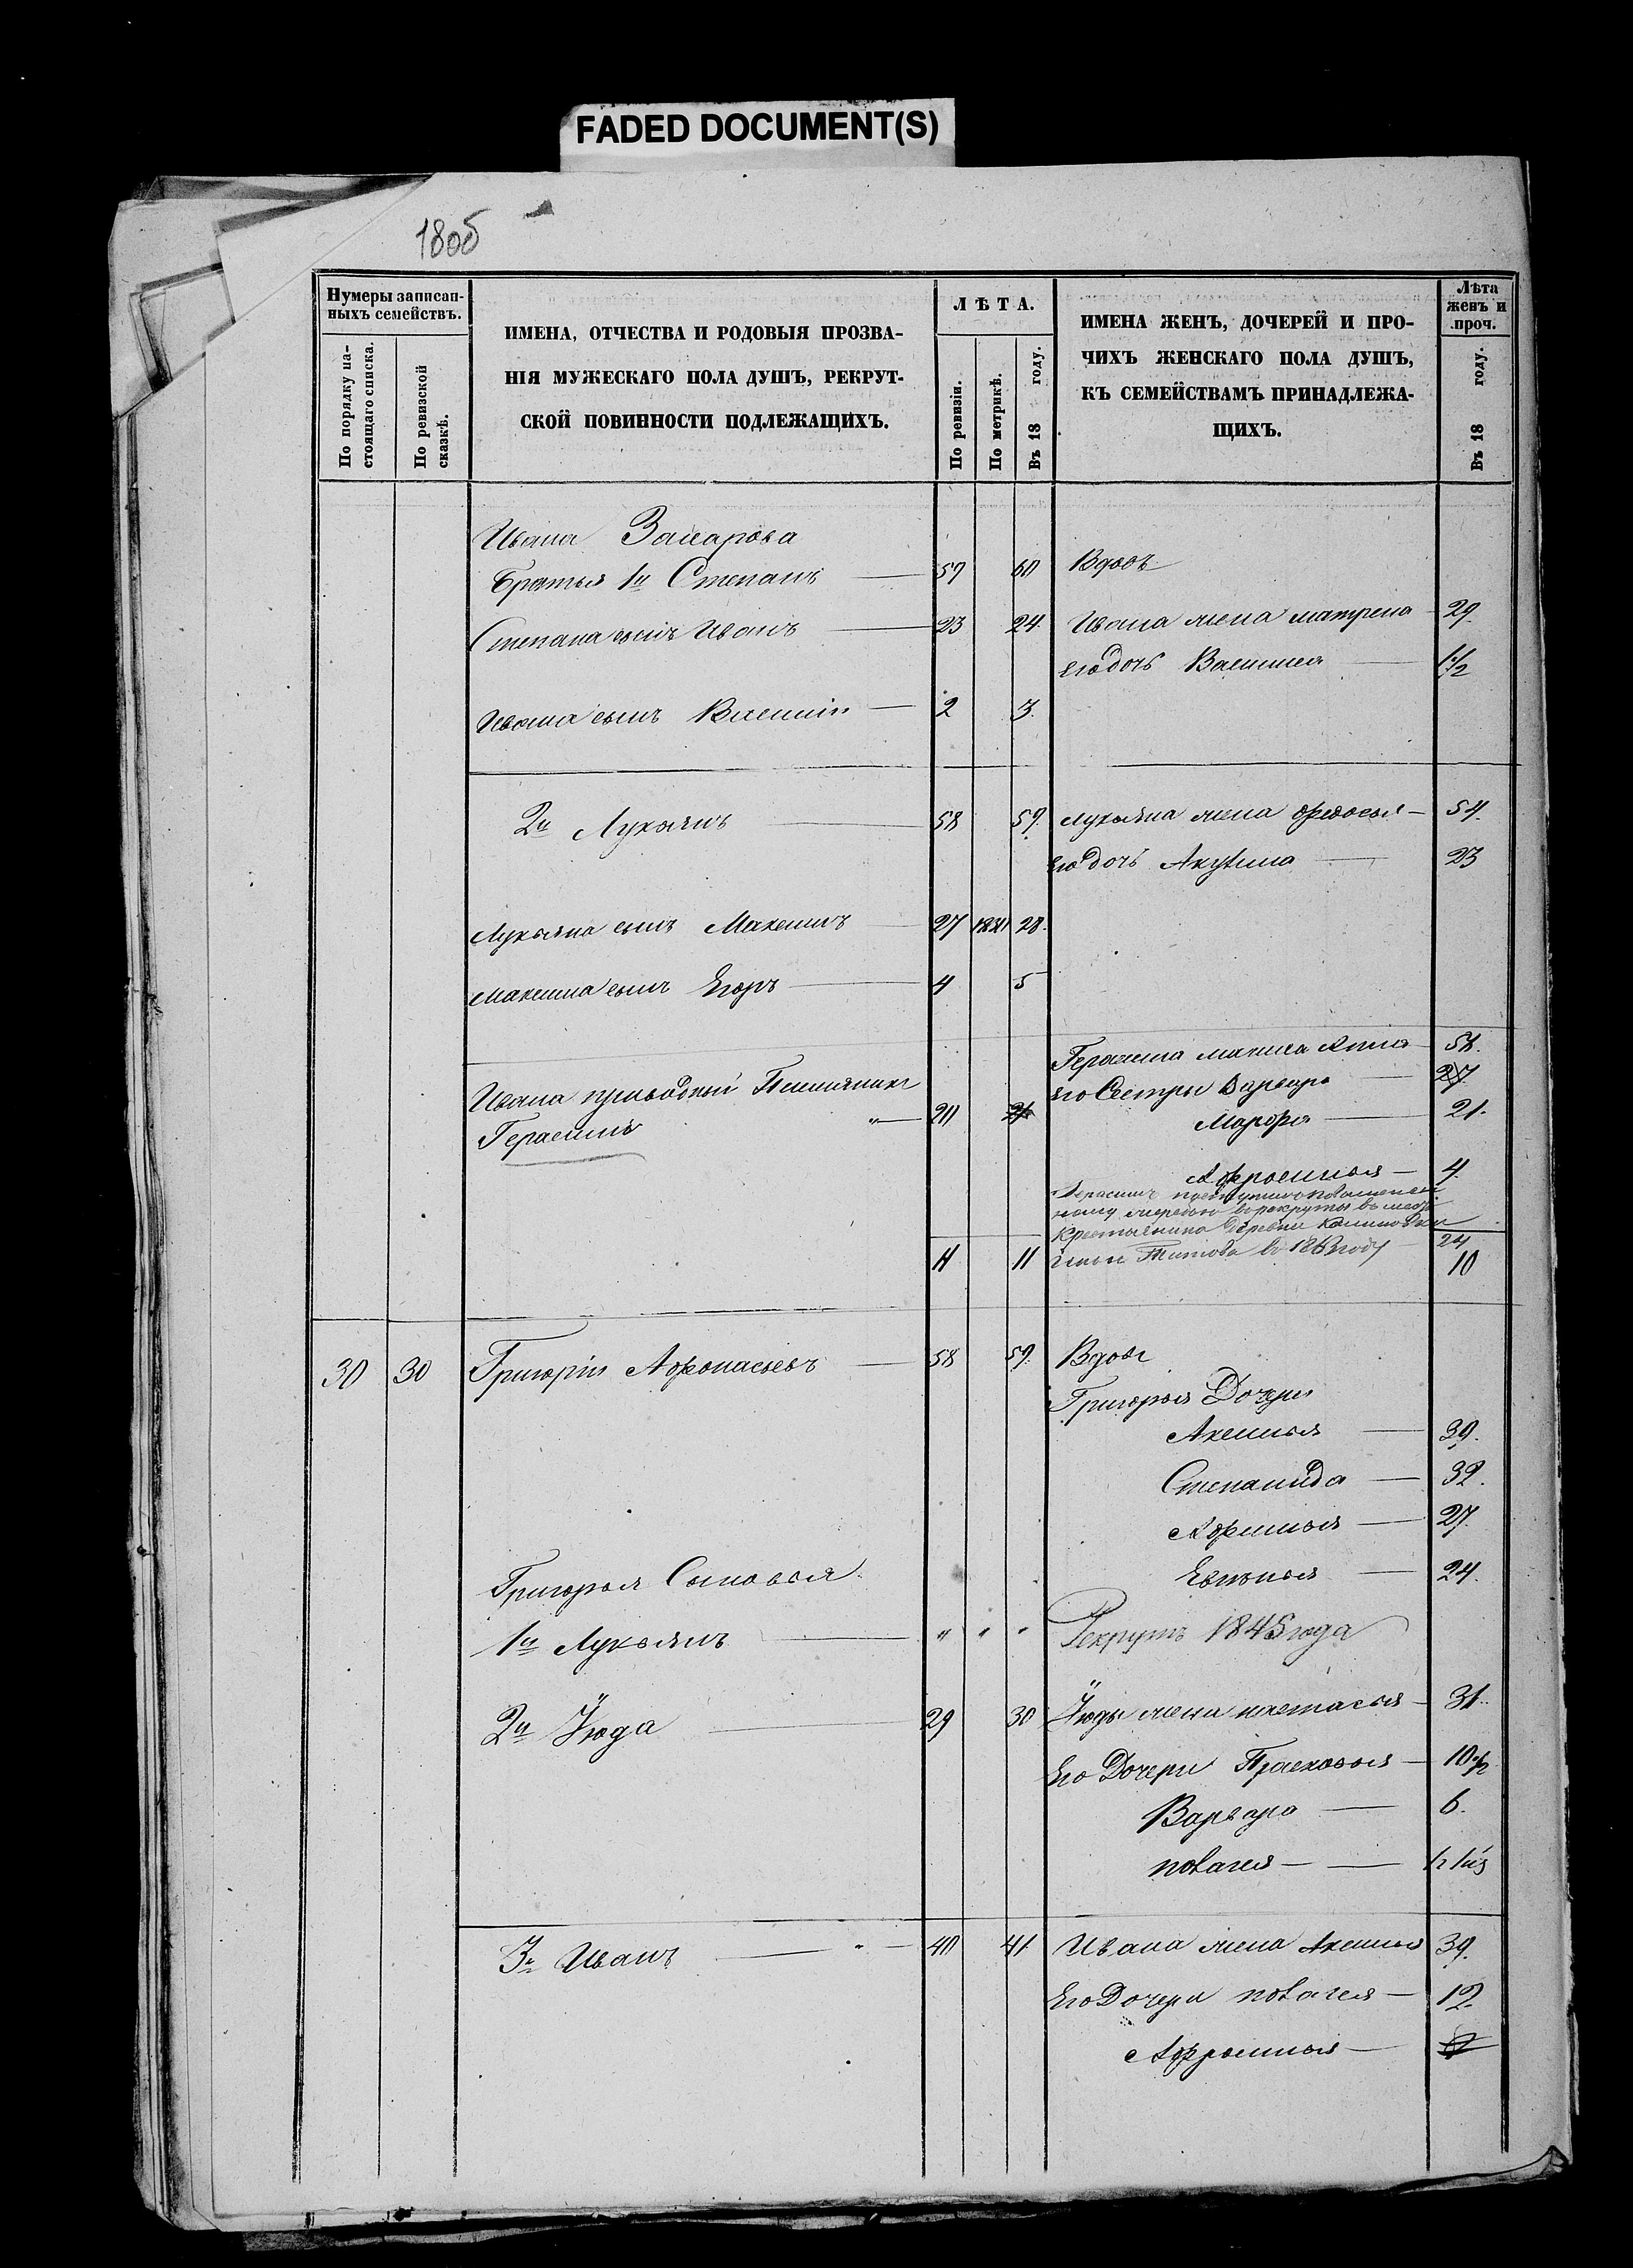 FADED DOCUMENT(S)
180об
Нумеры записан-
ныхъ семействъ.
По порядку на-
стоящаго списка.
По ревизской
сказкѣ.
ИМЕНА, ОТЧЕСТВА И РОДОВЫЯ ПРОЗВА-
НІЯ МУЖЕСКАГО ПОЛА ДУШЪ, РЕКРУТ-
СКОЙ ПОВИННОСТИ ПОДЛЕЖАЩИХЪ.
ЛѢТА.
По ревизіи.
По метрикѣ.
Въ 18 году.
ИМЕНА ЖЕНЪ, ДОЧЕРЕЙ И ПРО-
ЧИХЪ ЖЕНСКАГО ПОЛА ДУШЪ,
КЪ СЕМЕЙСТВАМЪ ПРИНАДЛЕЖА-
ЩИХЪ.
Лѣта
женъ и
проч.
Въ 18 году.
Ивана Захарова
Братья 1й Степанъ 59 60 Вдовъ
Степана сынъ Иванъ 23 24 Ивана жена матрена 29.
его дочь Василиса 1 1/2
Ивана сынъ Василій 2 3.
2й Лукьянъ 58 59. Лукьяна жена Федосья 54.
его дочь Акулина 23
Лукьяна сынъ Максимъ 27 1831 28.
Максима сынъ Егоръ 4 5
Герасима Анна 58.
Ивана Племянникъ его Сестры Варвара 27
Герасимъ 20 21 Марфа 21.
Афросинья 4.
Герасимъ
въ рекруты
Крестьянина деревни
Титова 24
11 11 10
30 30 Григорій Афонасьевъ 58 59. Вдовъ
Григорья Дочери
Аксинья 39.
Степанида 32.
Афимья 27.
Евгенья 24.
Григорья Сыновья
1й Лукьянъ " " " Рекрутъ 1845 года
2й Июда 29 30 Июды жена настасья 31.
Его Дочери Прасковья 10 1/2
Варвара 6.
пелагея
3й Иванъ 40 41 Ивана жена Аксинья 39.
Его Дочери пелагея 12.
Афросинья